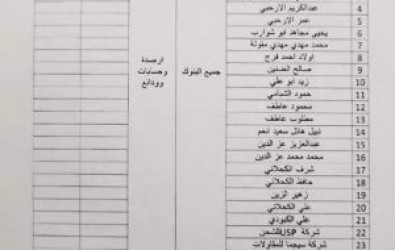 4 عبدالكريم الارحبي
5 عمر الارحبي
6 يحيى مجاهد ابو شوارب
7 محمد مهدي مهدي مقولة
8 اولاد احمد فرج
9 صالح الضنين
10 زيد ابو علي
11 حمود الشبامي
12 محمود عاطف
13 مطلوب عاطف
14 نبيل هائل سعيد انعم
15 عبدالعزيز عز الدين
16 محمد محمد عز الدين
17 شرف الكحلاني
18 حافظ الكحلاني
19 زهير الزين
20 علي الكحلاني
21 علي الكبودي
22 شركة USP للشحن
23 شركة سيجما للمقاولات
جميع البنوك
ارصدة
وحسابات
وودائع